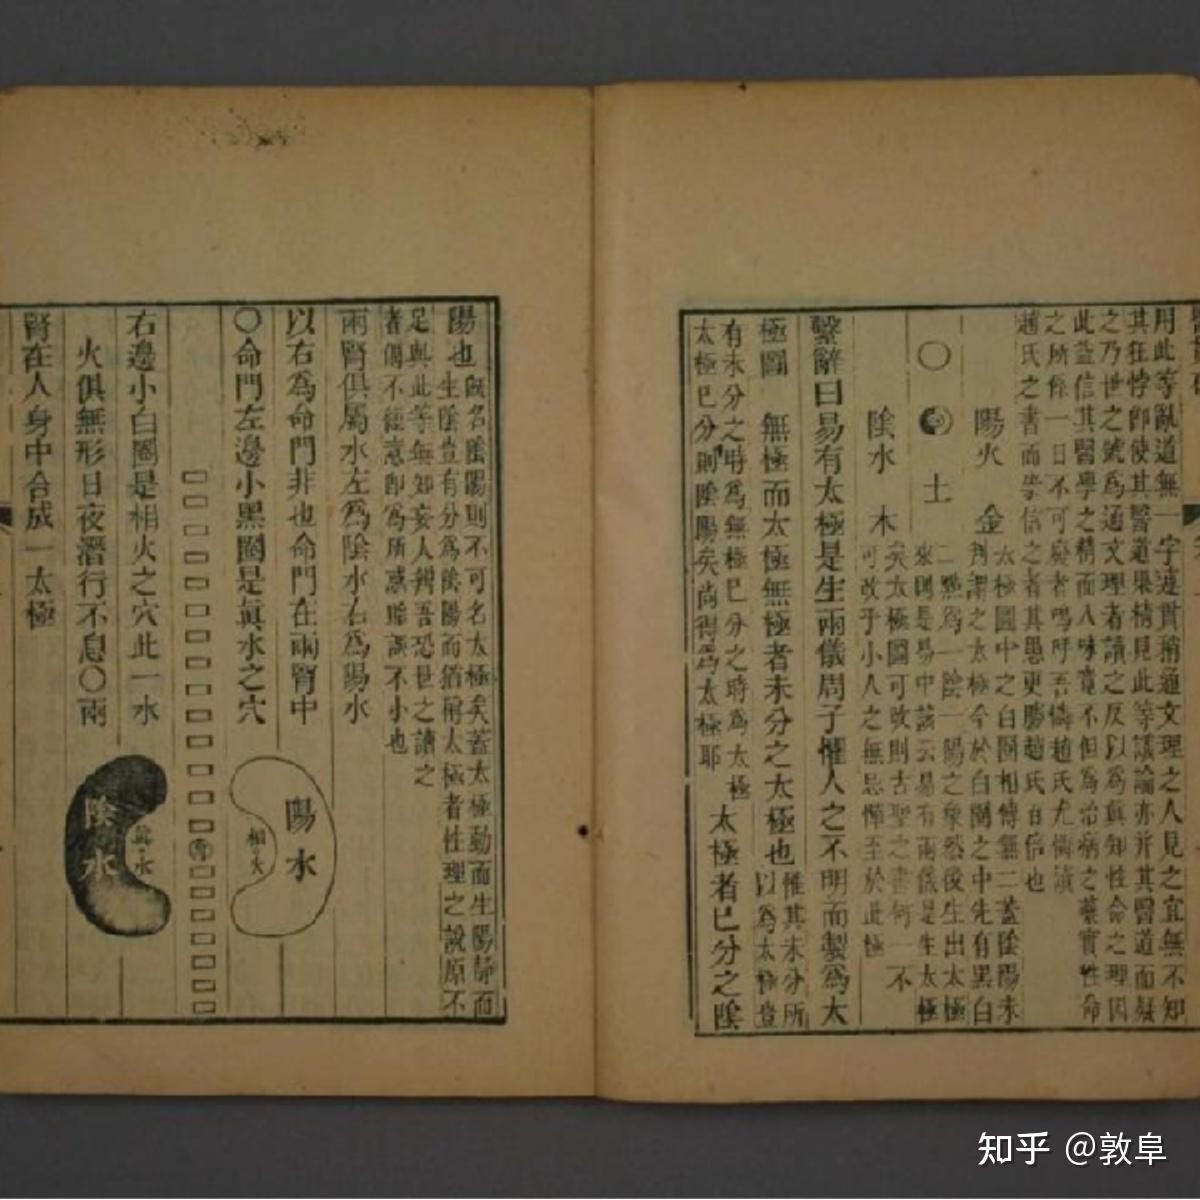 用此等亂道無一字連貫稍通文理之人見之宜無不知
其狂悖卽使其醫道果精見此等議論亦并其醫道而疑
之乃世之號為通文理者讀之反以為真知性命之理因
此益信其醫學之精而入味不但為治病之藥實性命
之所係一日不可廢者嗚呼吾憐趙氏尤憐讀
趙氏之書而崇信之者其愚更勝趙氏自信也
陽火 金
太極圖中之白圈相傳無二蓋陰陽未
判謂之太極今於白圈之中先有黑白
○ 土
二點為一陰一陽之象然後生出太極
來則是易中該云易有兩儀是生太極
陰水 木
矣太極圖可改則古聖之書何一不
可改乎小人之無忌憚至於此極
繫辭曰易有太極是生兩儀周子懼人之不明而製為太
極圖 無極而太極無極者未分之太極也
惟其未分所
以為太極豈
有未分之時為無極已分之時為太極
太極已分則陰陽矣尚得為太極耶
太極者已分之陰
陽也
旣名陰陽則不可名太極矣蓋太極動而生陽靜而
生陰豈有分為陰陽而猶稱太極者性理之說原不
足與此等無知妄人辨吾恐世之讀之
者偶不經意卽為所惑貽誤不小也
兩腎俱屬水左為陰水右為陽水
以右為命門非也命門在兩腎中
○命門左邊小黑圈是眞水之穴
陽水
相火
右邊小白圈是相火之穴此一水
火俱無形日夜潛行不息○兩
眞水
陰水
腎在人身中合成一太極
知乎 @敦阜